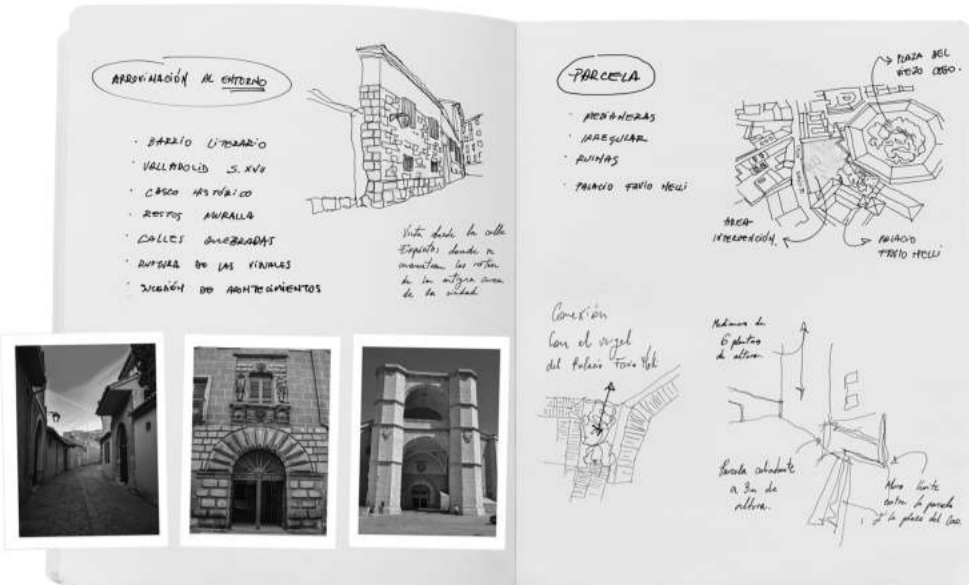 APROXIMACIÓN AL ENTORNO
· BARRIO LITERARIO
· VALLADOLID S. XVII
· CASCO HISTÓRICO
· RESTOS MURALLA
· CALLES QUEBRADAS
· RUPTURA DE LAS VISUALES
· SUCESIÓN DE ACONTECIMIENTOS
Vista desde la calle
Expósitos donde se
encuentran los restos
de la antigua cerca
de la ciudad
PARCELA
· MEDIANERAS
· IRREGULAR
· RUINAS
· PALACIO FAVIO NELLI
PLAZA DEL
VIEJO COSO.
AREA
INTERVENCIÓN
PALACIO
FAVIO NELLI
Conexión
Con el vergel
del Palacio Favio Nelli
Medianera de
6 plantas
de altura
Parcela colindante
a 3m de
altura.
Muro límite
entre la parcela
y la plaza del Coso.